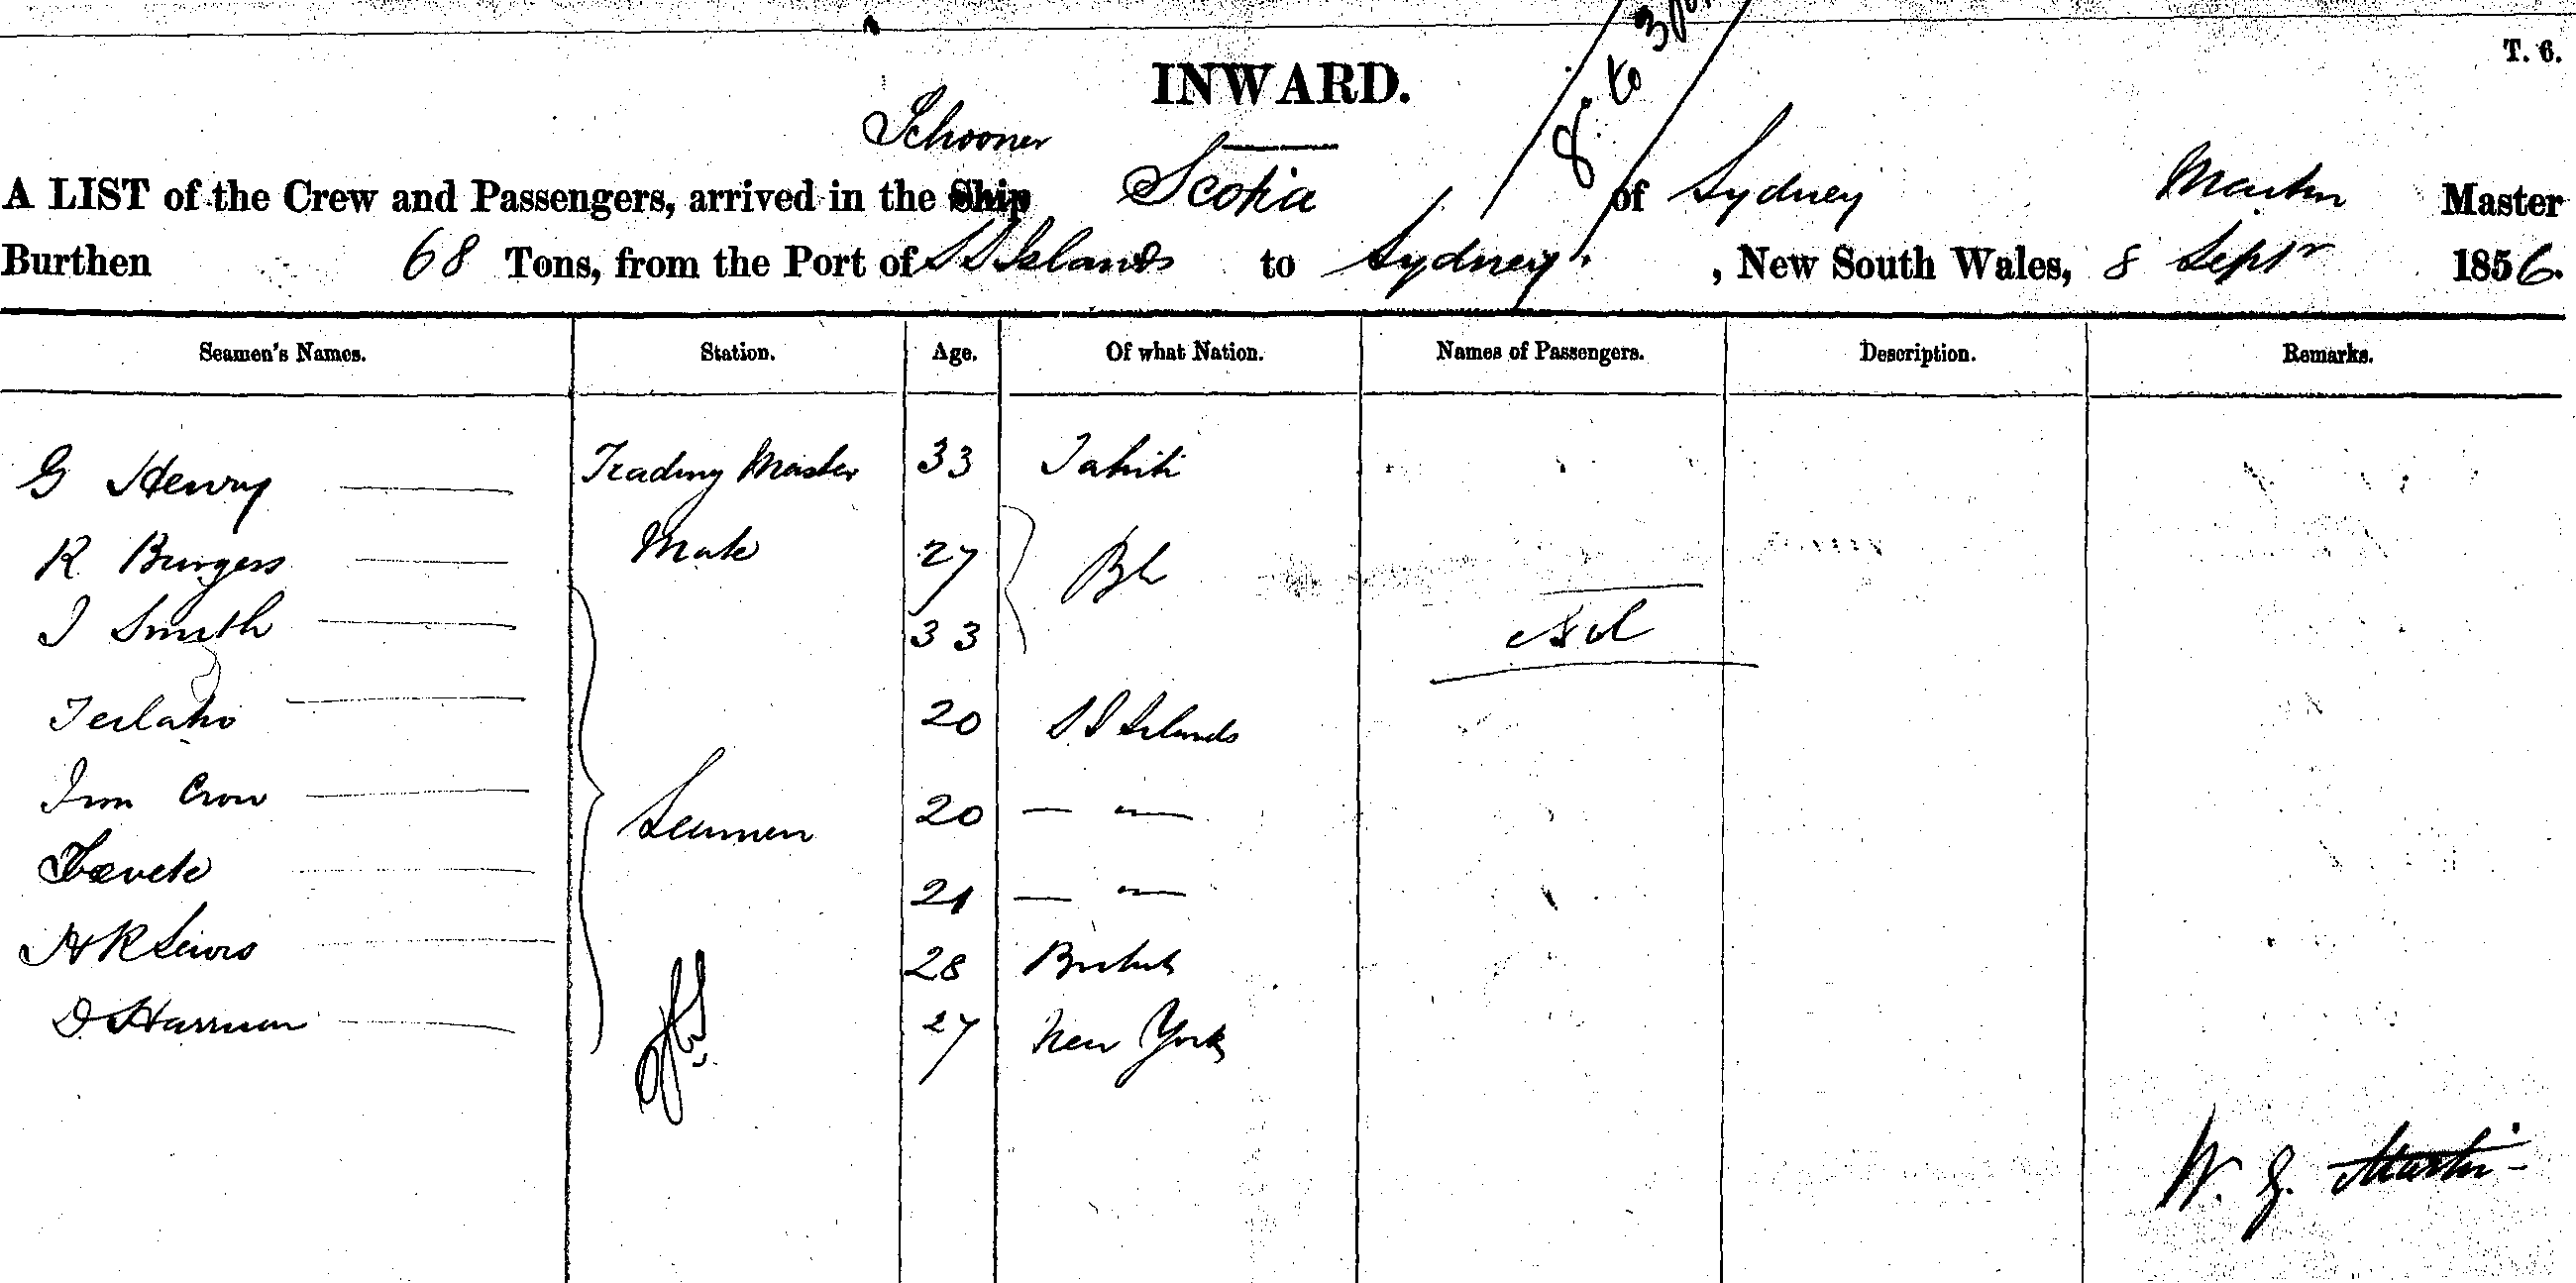 T. 6.
INWARD.
Schooner
A LIST of the Crew and Passengers, arrived in the Ship Scotia of Sydney Martin Master
Burthen 68 Tons, from the Port of S S Islands to Sydney, New South Wales, 8 Septr 1856.
Seamen's Names. Station. Age. Of what Nation. Names of Passengers. Description. Remarks.
G Henry Trading Master 33 Tahiti
R Burgess Mate 27 Bh
J Smith 33 Nil
20 S S Islands
Crow Seamen 20 — —
21 — —
H R Lewis 28 British
D. Harrison 27 New York
W. G. Martin